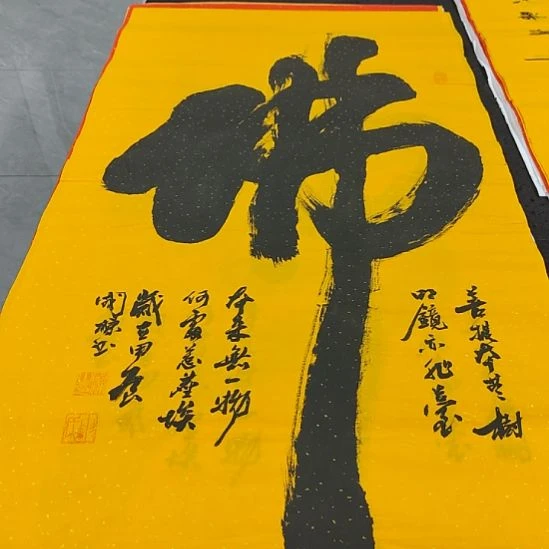 佛
菩提本無樹
明鏡亦非臺
本来無一物
何處惹塵埃
歲在甲辰